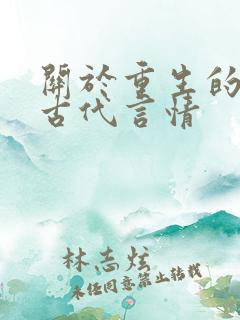 關於重生的
古代言情
林志炫
未經同意禁止轉載